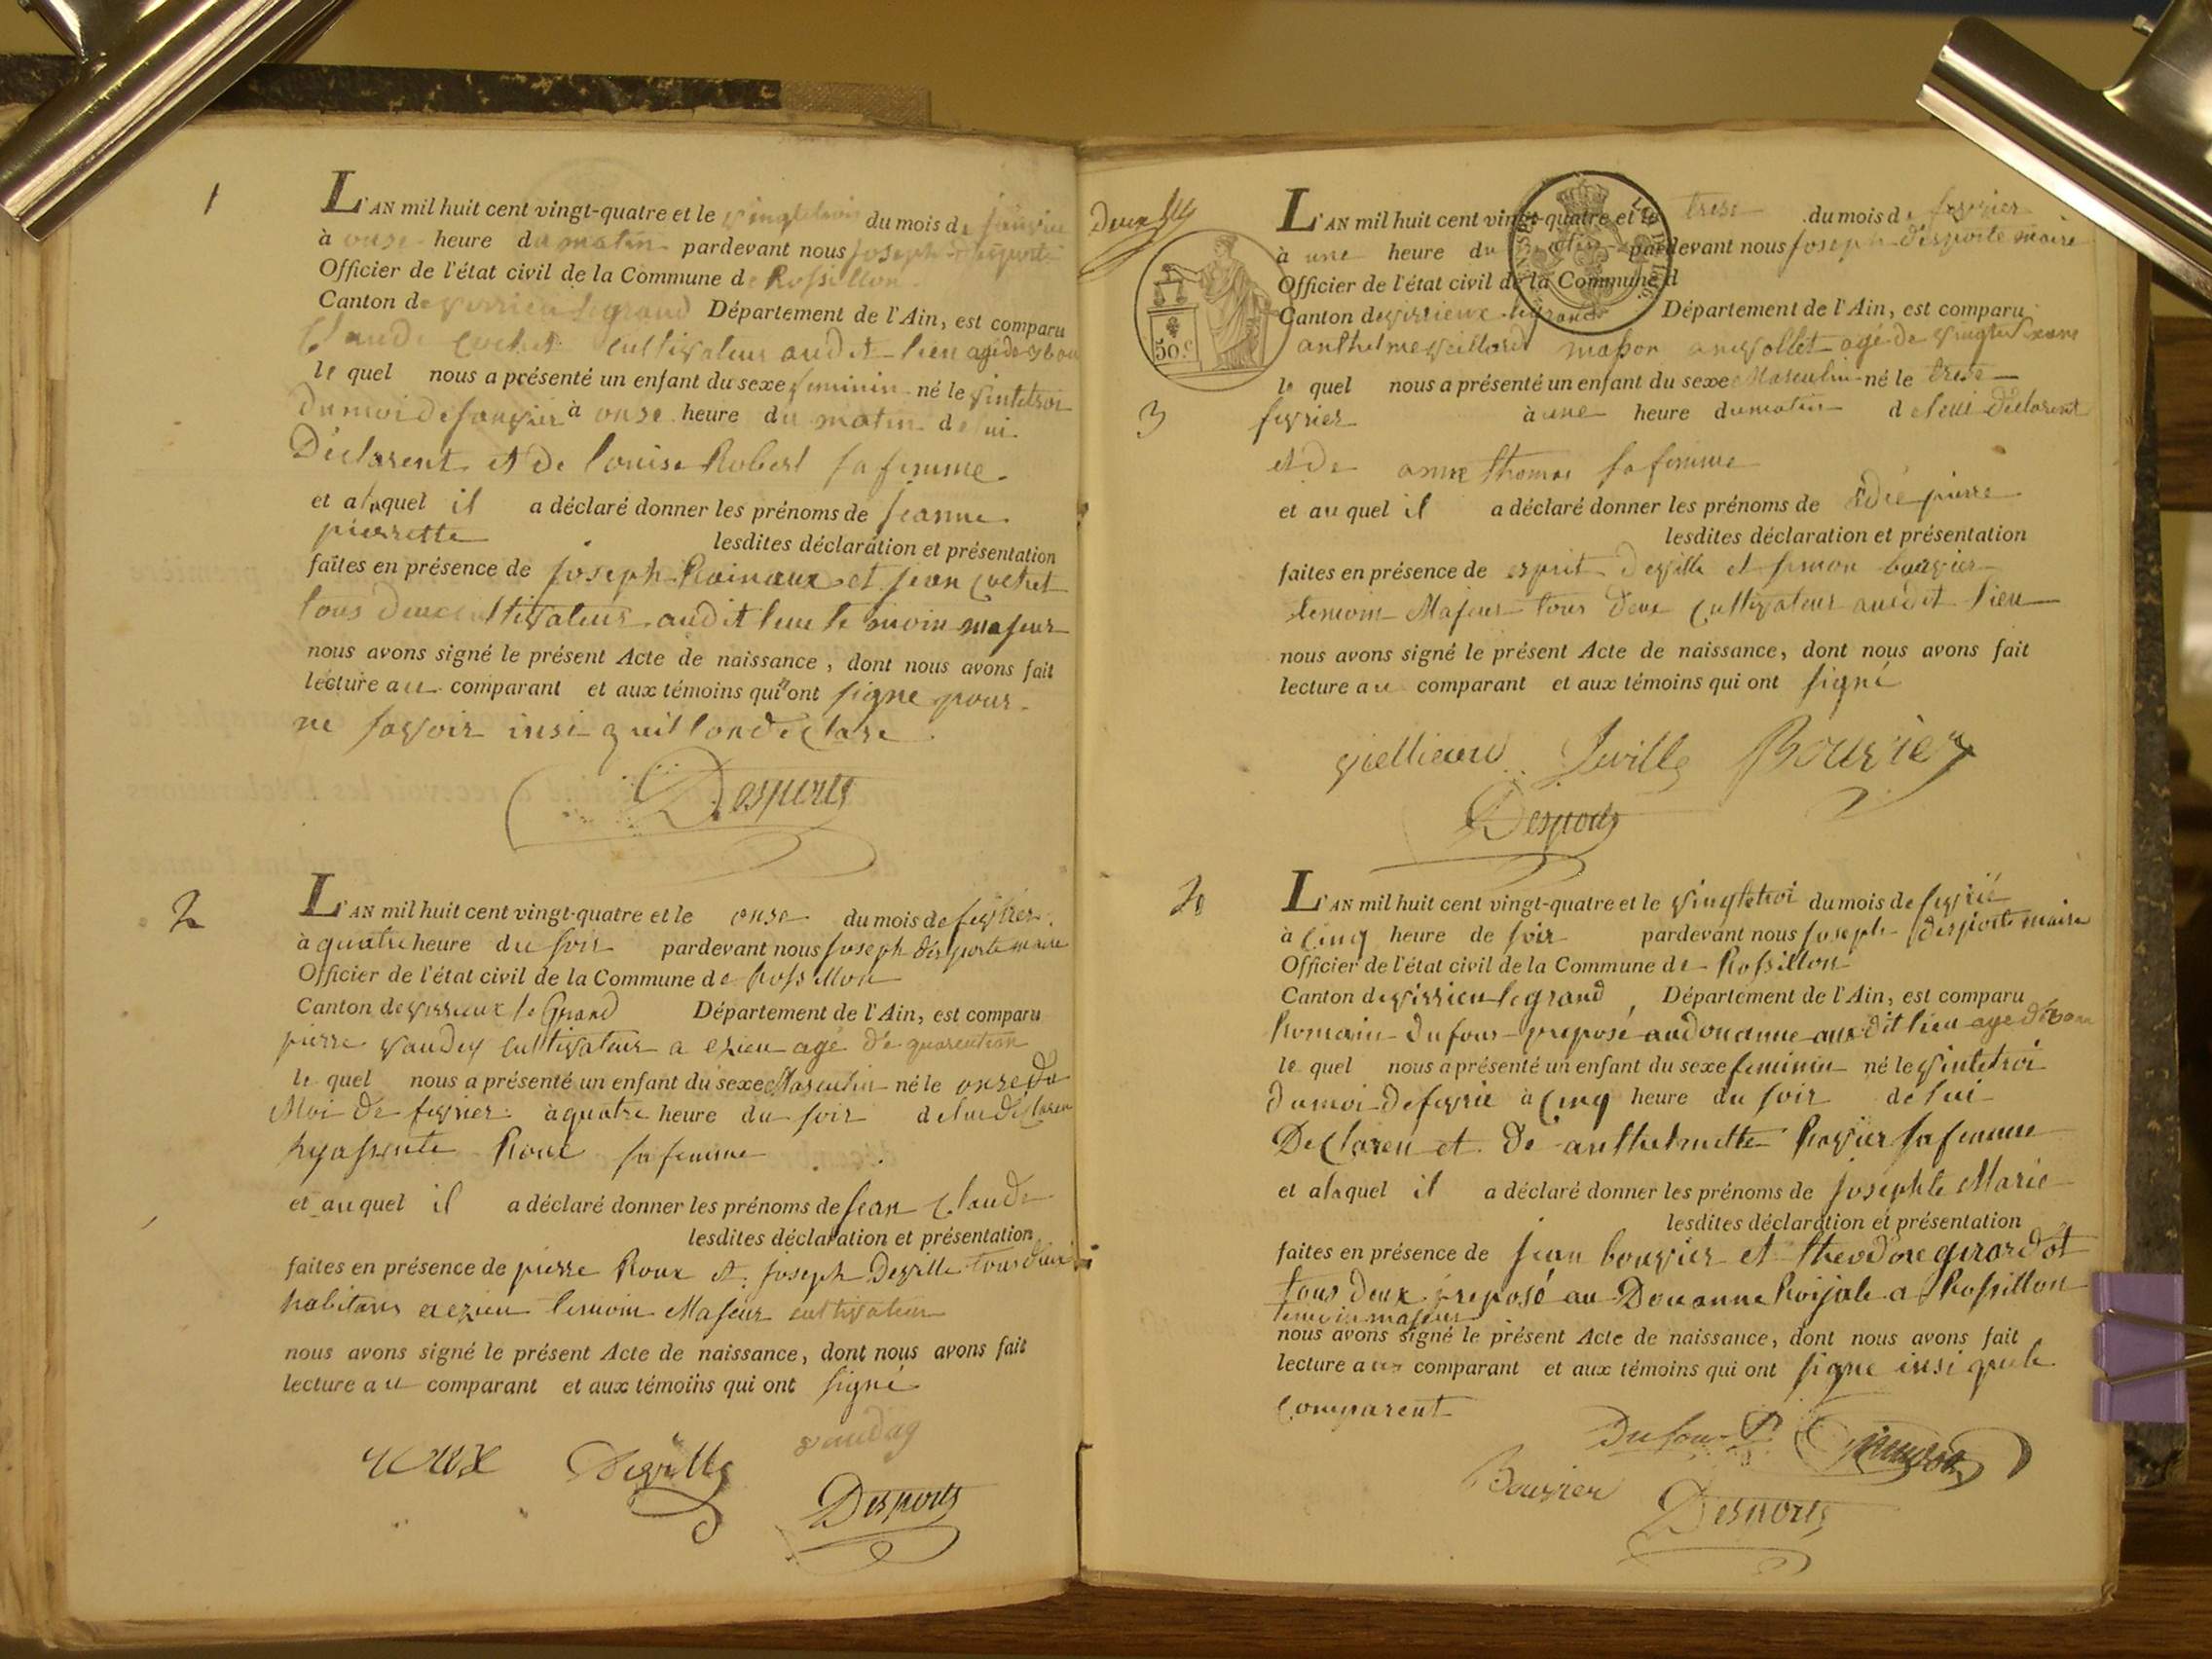 1
L'AN mil huit cent vingt-quatre et le vingtetrois du mois de janvier
à onse heure du matin pardevant nous joseph desporte
Officier de l'état civil de la Commune de Rossillon
Canton de virrieu legrand Département de l'Ain, est comparu
Claude Cochet cultivateur audit lieu agé de
le quel nous a présenté un enfant du sexe feminin né le vintetroi
du moi de janvier à onse heure du matin de lui
Déclarent et de louise Robert sa femme
et alaquel il a déclaré donner les prénoms de jeanne
pierrette lesdites déclaration et présentation
faites en présence de joseph Roinaux et jean Cochet
tous deux cultivateurs audit lieu temoin majeur
nous avons signé le présent Acte de naissance, dont nous avons fait
lecture au comparant et aux témoins qui n'ont signe pour
ne savoir insi quil lon déclare
Desporte
2
L'AN mil huit cent vingt-quatre et le onse du mois de fevrier
à quatre heure du soir pardevant nous joseph desporte maire
Officier de l'état civil de la Commune de Rossillon
Canton de virrieux le Grand Département de l'Ain, est comparu
pierre vaudey cultivateur a ezieu agé de quarention
le quel nous a présenté un enfant du sexe Masculin né le onze du
Moi de fevrier à quatre heure du soir de lui déclaren
hyassente Roux sa femme
et au quel il a déclaré donner les prénoms de jean Claude
lesdites déclaration et présentation
faites en présence de pierre Roux et joseph Deville tous deux
habitans a ezieu temoin Majeur cultivateur
nous avons signé le présent Acte de naissance, dont nous avons fait
lecture au comparant et aux témoins qui ont signé
vaudag
roux Deville
Desporte
Deux
50 c.
3
L'AN mil huit cent vingt-quatre et le trese du mois de fevrier
à une heure du matin pardevant nous joseph desporte maire
Officier de l'état civil de la Commune d
Canton de virrieux legrand Département de l'Ain, est comparu
anthelme veillard mason a nevollet agé de vingtesixans
le quel nous a présenté un enfant du sexe Masculin né le trese
fevrier à une heure du matin de lui déclarent
et de anne thomas sa femme
et au quel il a déclaré donner les prénoms de pierre
lesdites déclaration et présentation
faites en présence de esprit deville et simon bouvier
temoin Majeur tous deux cultivateur audit lieu
nous avons signé le présent Acte de naissance, dont nous avons fait
lecture au comparant et aux témoins qui ont signé
vielliard Deville Bouvier
Desporte
L'AN mil huit cent vingt-quatre et le vingtetroi du mois de fevrié
à Cinq heure de soir pardevant nous joseph desporte maire
Officier de l'état civil de la Commune de Rossillon
Canton de virrieu legrand Département de l'Ain, est comparu
Romain dufour preposé au douanne audit lieu age
le quel nous a présenté un enfant du sexe feminin né le vintetroi
du moi de fevrié à Cinq heure du soir de lui
DeClaren et de anthelmette Ravier sa femme
et alaquel il a déclaré donner les prénoms de josephte Marie
lesdites déclaration et présentation
faites en présence de jean bouvier et theodore girardot
tous deux preposé au Douanne Roijale a Rossillon
temoin majeur
nous avons signé le présent Acte de naissance, dont nous avons fait
lecture au comparant et aux témoins qui ont signe insi que le
Comparent
Dufour
Bouvier
Desporte